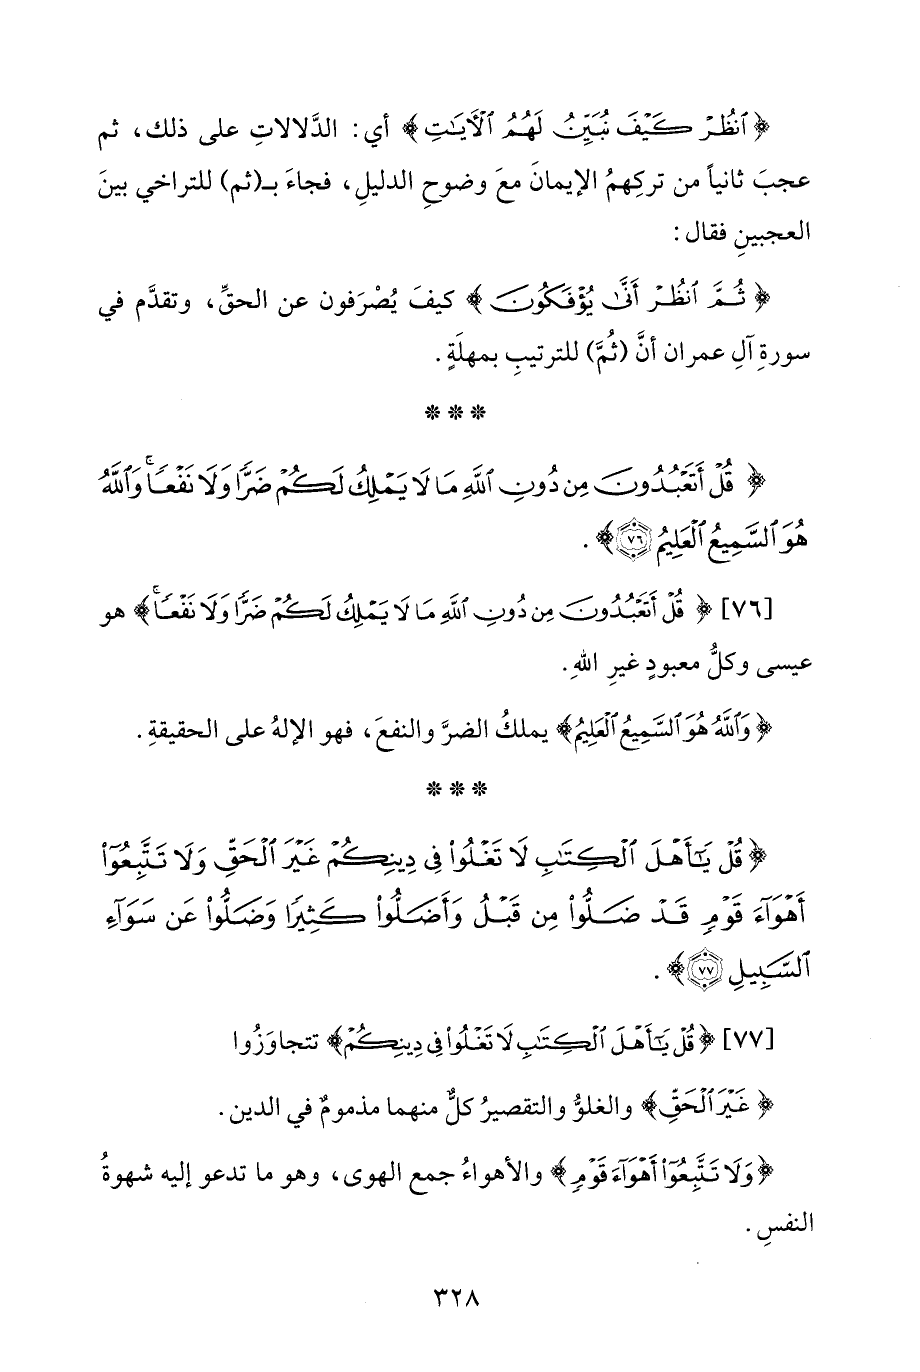 ﴿ٱنظُرۡ كَيۡفَ نُبَيِّنُ لَهُمُ ٱلۡأٓيَٰتِ﴾ أي: الدَّلالاتِ على ذلك، ثم
عجبَ ثانياً من تركِهمُ الإيمانَ معَ وضوحِ الدليلِ، فجاءَ بـ(ثم) للتراخي بينَ
العجبينِ فقال:
﴿ثُمَّ ٱنظُرۡ أَنَّىٰ يُؤۡفَكُونَ﴾ كيفَ يُصْرَفون عن الحقِّ، وتقدَّم في
سورةِ آلِ عمران أنَّ (ثُمَّ) للترتيبِ بمهلَةٍ.
***
﴿قُلۡ أَتَعۡبُدُونَ مِن دُونِ ٱللَّهِ مَا لَا يَمۡلِكُ لَكُمۡ ضَرّٗا وَلَا نَفۡعٗاۚ وَٱللَّهُ
هُوَ ٱلسَّمِيعُ ٱلۡعَلِيمُ ٧٦﴾.
[٧٦] ﴿قُلۡ أَتَعۡبُدُونَ مِن دُونِ ٱللَّهِ مَا لَا يَمۡلِكُ لَكُمۡ ضَرّٗا وَلَا نَفۡعٗاۚ﴾ هو
عيسى وكلُّ معبودٍ غيرِ اللهِ.
﴿وَٱللَّهُ هُوَ ٱلسَّمِيعُ ٱلۡعَلِيمُ﴾ يملكُ الضرَّ والنفعَ، فهو الإلهُ على الحقيقةِ.
***
﴿قُلۡ يَٰٓأَهۡلَ ٱلۡكِتَٰبِ لَا تَغۡلُواْ فِي دِينِكُمۡ غَيۡرَ ٱلۡحَقِّ وَلَا تَتَّبِعُوٓاْ
أَهۡوَآءَ قَوۡمٖ قَدۡ ضَلُّواْ مِن قَبۡلُ وَأَضَلُّواْ كَثِيرٗا وَضَلُّواْ عَن سَوَآءِ
ٱلسَّبِيلِ ٧٧﴾.
[٧٧] ﴿قُلۡ يَٰٓأَهۡلَ ٱلۡكِتَٰبِ لَا تَغۡلُواْ فِي دِينِكُمۡ﴾ تتجاوَزُوا
﴿غَيۡرَ ٱلۡحَقِّ﴾ والغلوُّ والتقصيرُ كلٌّ منهما مذمومٌ في الدين.
﴿وَلَا تَتَّبِعُوٓاْ أَهۡوَآءَ قَوۡمٖ﴾ والأهواءُ جمع الهوى، وهو ما تدعو إليه شهوةُ
النفسِ.
٣٢٨